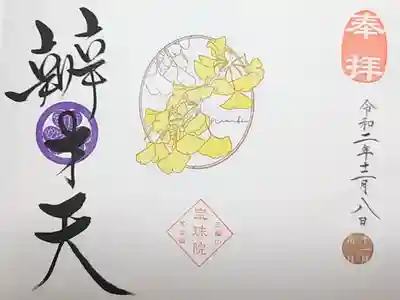 奉拝
令和二年十一月八日
辨才天
宝珠院